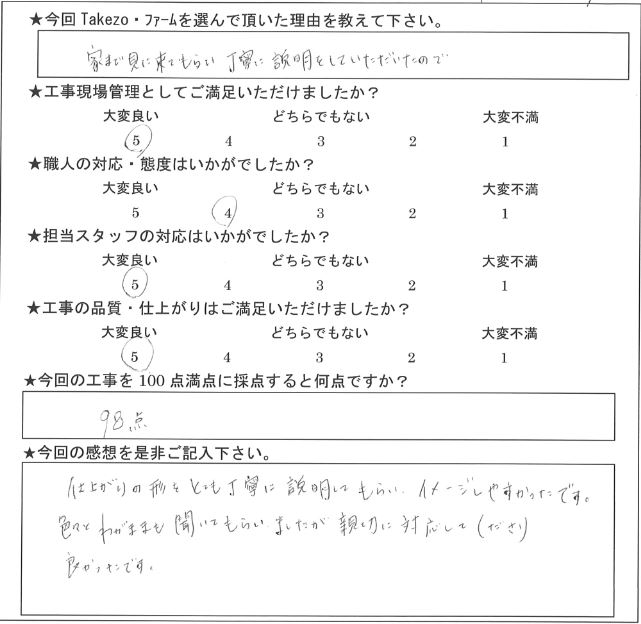 ★今回Takezo・ファームを選んで頂いた理由を教えて下さい。
家まで見に来てもらい 丁寧に説明をしていただいたので
★工事現場管理としてご満足いただけましたか？
大変良い どちらでもない 大変不満
5 4 3 2 1
★職人の対応・態度はいかがでしたか？
大変良い どちらでもない 大変不満
5 4 3 2 1
★担当スタッフの対応はいかがでしたか？
大変良い どちらでもない 大変不満
5 4 3 2 1
★工事の品質・仕上がりはご満足いただけましたか？
大変良い どちらでもない 大変不満
5 4 3 2 1
★今回の工事を100点満点に採点すると何点ですか？
98点
★今回の感想を是非ご記入下さい。
仕上がりの形をとても丁寧に説明してもらい、イメージしやすかったです。
色々とわがままも聞いてもらいましたが親切に対応して下さり
良かったです。